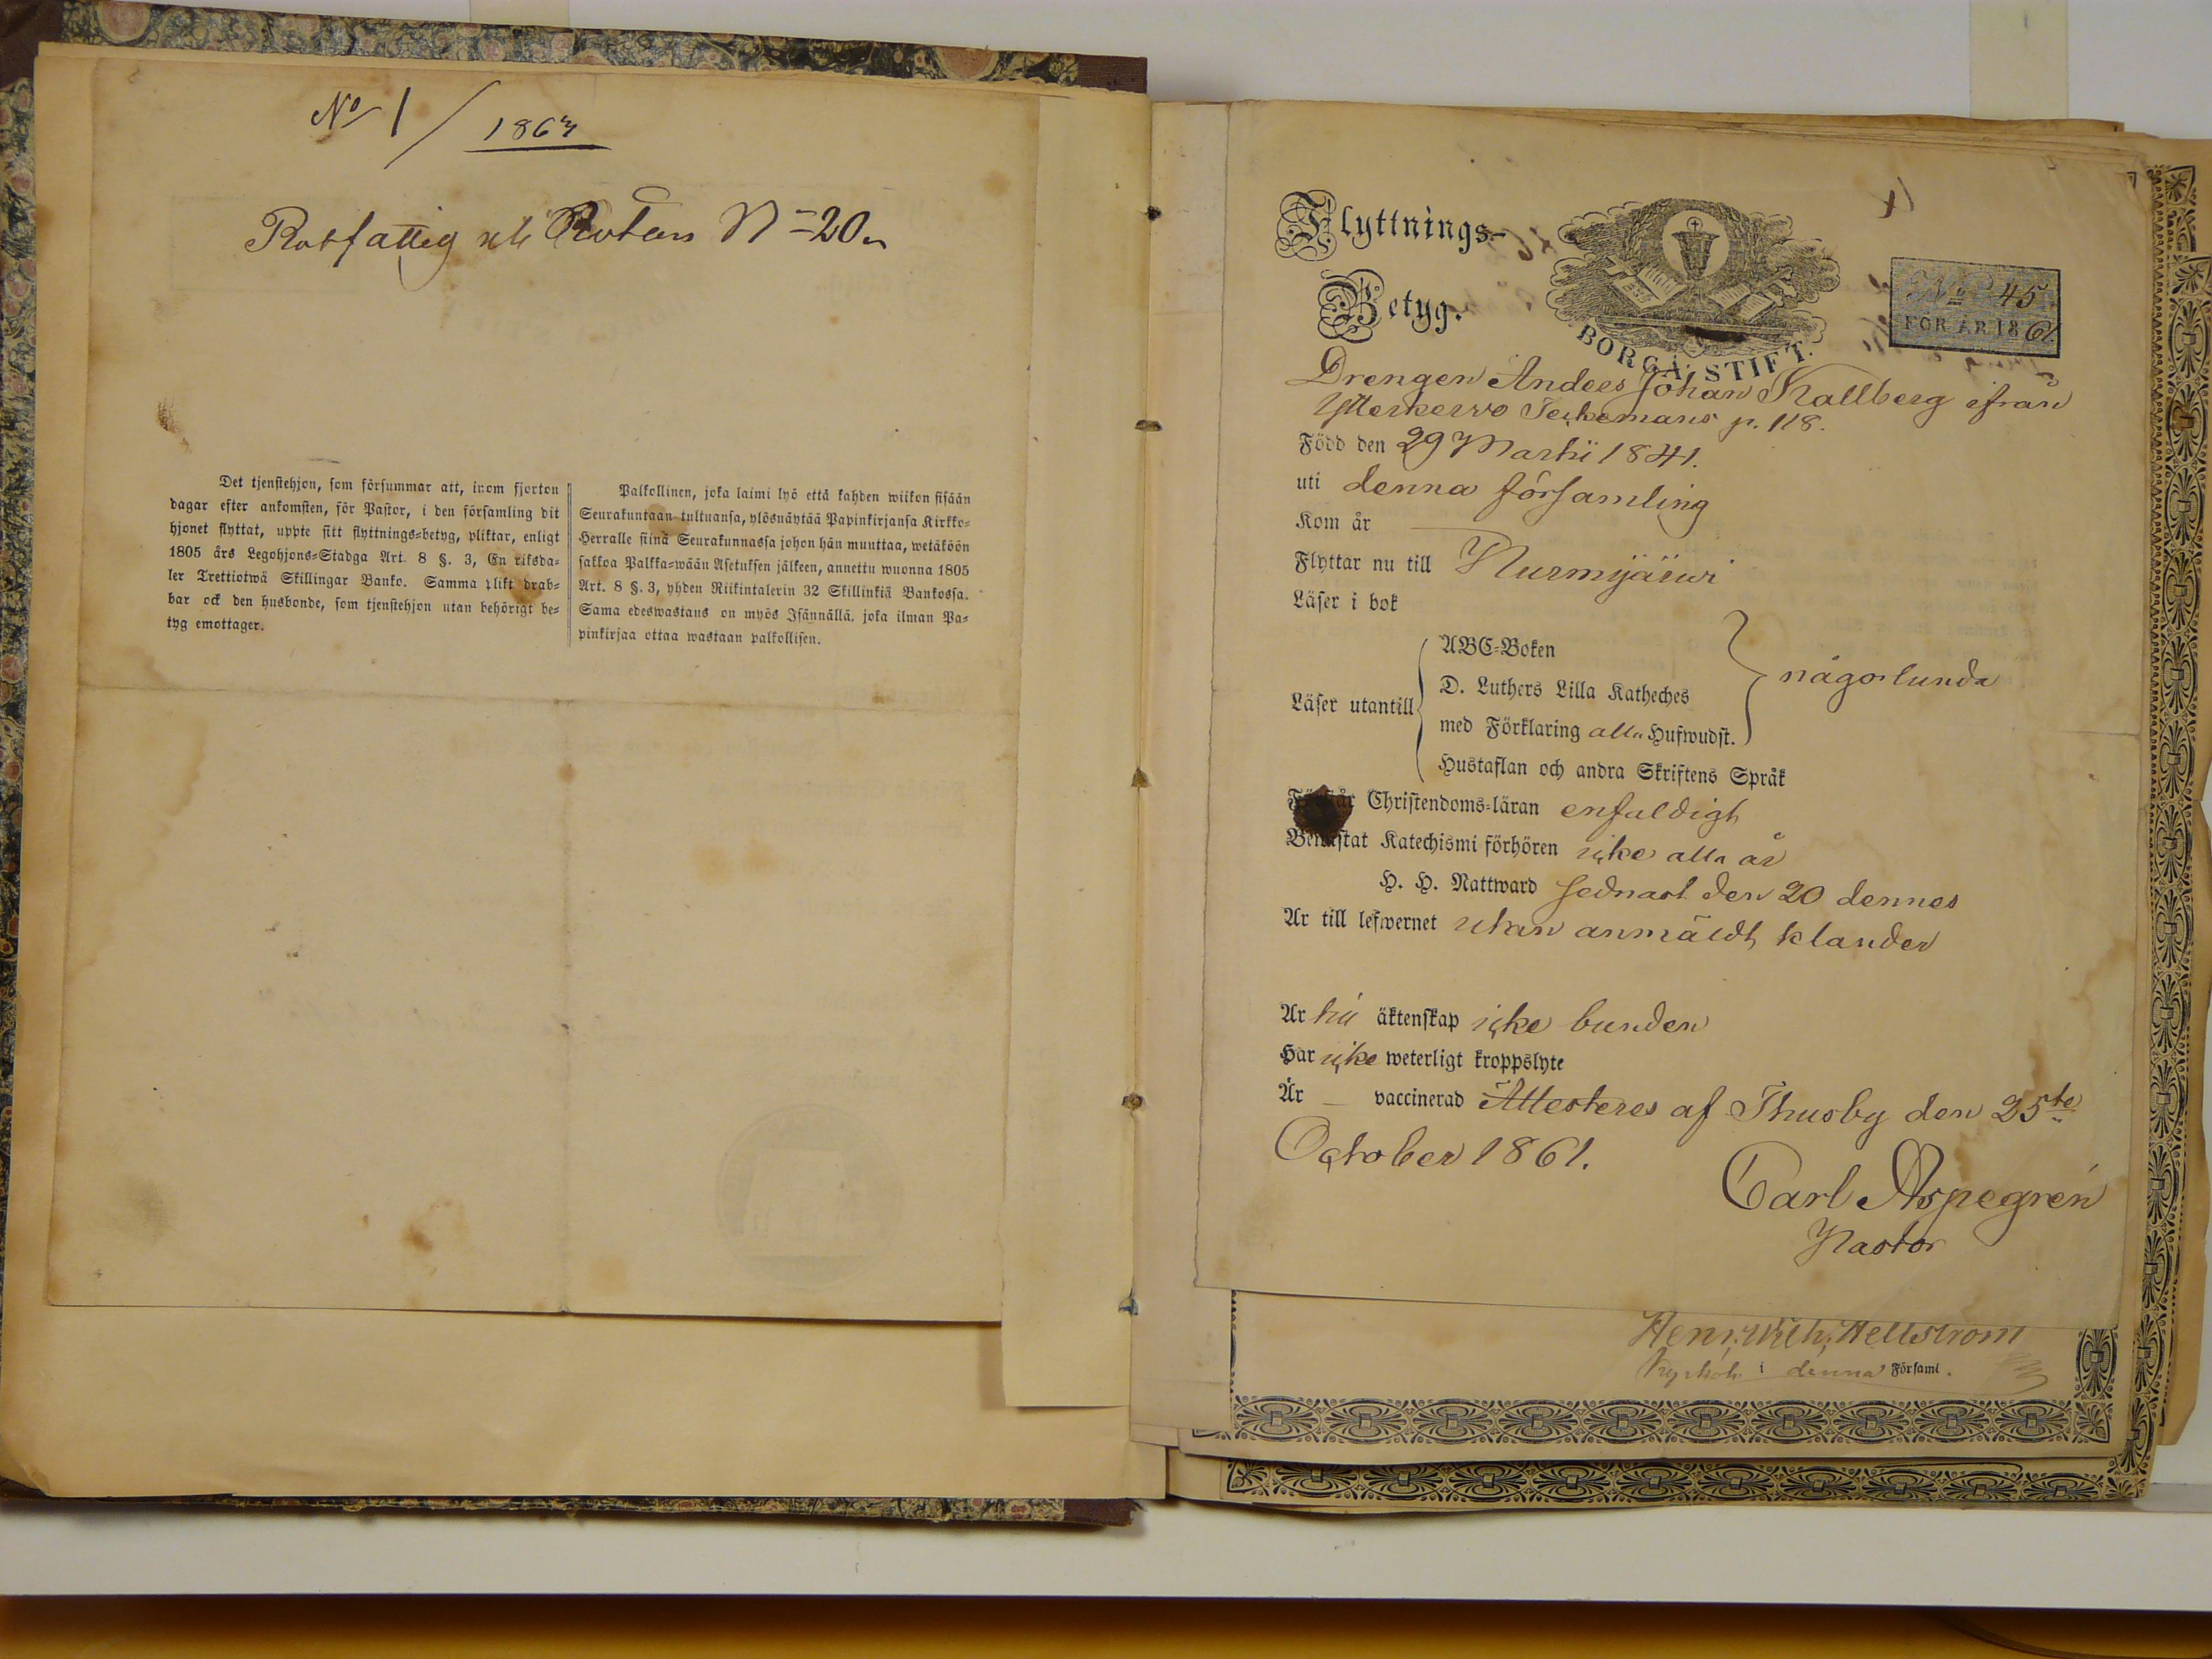 No 1 / 1863
Rotfattig uti Rotan N=20
Det tjenstehjon, som försummar att, inom fjorton
dagar efter ankomsten, för Pastor, i den församling dit
hjonet flyttat, uppte sitt flyttnings=betyg, pliktar, enligt
1805 års Legohjons=Stadga Art. 8 §. 3, En riksda=
ler Trettiotwå Skillingar Banko. Samma plikt drab=
bar ock den husbonde, som tjenstehjon utan behörigt be=
tyg emottager.
Palkollinen, joka laimi lyö että kahden wiikon sisään
Seurakuntaan tultuansa, ylösnäytää Papinkirjansa Kirkko=
Herralle siinä Seurakunnassa johon hän muuttaa, wetäköön
sakkoa Palkka=wään Asetuksen jälkeen, annettu wuonna 1805
Art. 8 §. 3, yhden Riikintalerin 32 Skillinkiä Bankossa.
Sama edeswastaus on myös Isännällä, joka ilman Pa=
pinkirjaa ottaa wastaan palkollisen.
Flyttnings=
Betyg.
BORGÅ STIFT.
No 45
FÖR ÅR 1861.
Drengen Anders Johan Kallberg ifrån
Ytterkerwo Jeckemans p. 118.
Född den 29 Martii 1841.
uti denna församling
Kom år
Flyttar nu till Nurmijärwi
Läser i bok
Läser utantill
ABC=Boken
D. Luthers Lilla Katheches
med Förklaring alla Hufwudst.
Hustaflan och andra Skriftens Språk
någorlunda
Förstår Christendoms=läran enfaldigt
Bewistat Katechismi förhören icke alla år
H. H. Nattward sednast den 20 dennes
Är till lefwernet utan anmäldt klander
Är till äktenskap icke bunden
Har icke weterligt kroppslyte
Är — vaccinerad Attesteres af Thusby den 25te
October 1861.
Carl Aspegrén
Pastor
Henr. Wilh. Hellström
Kyrkoh. i denna Församl.